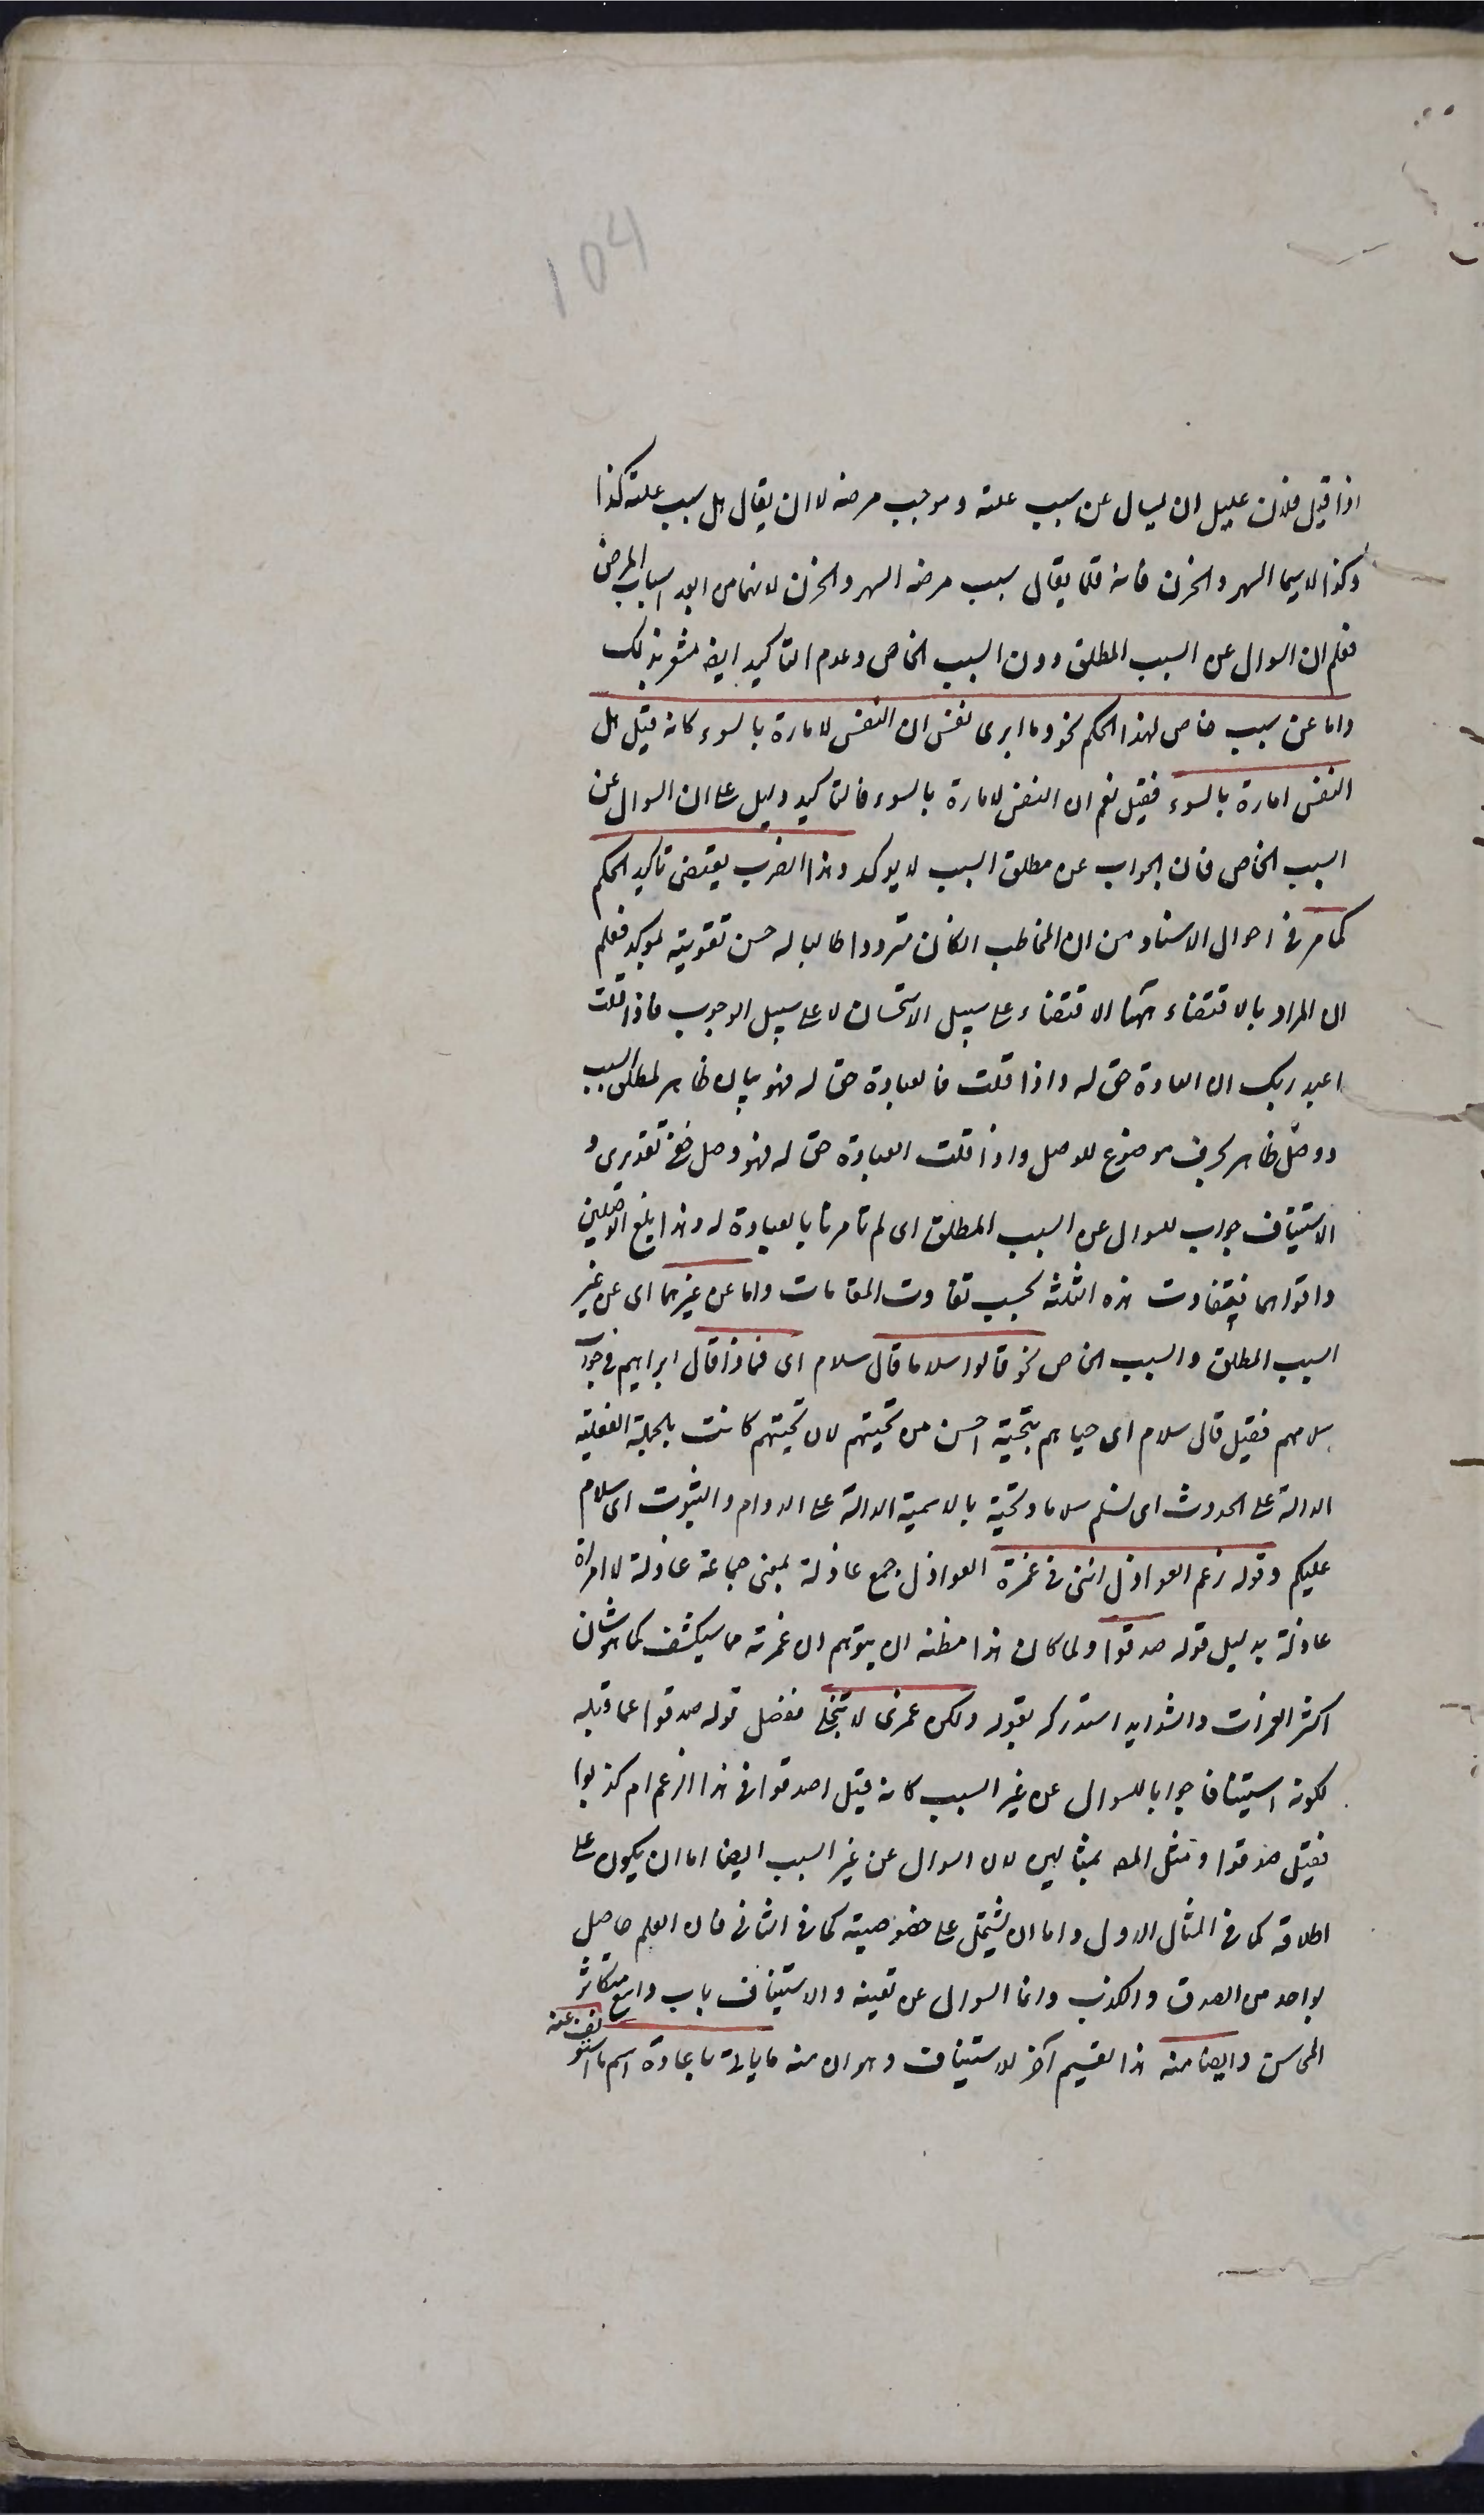 104
اذا قيل فلان عليل ان يسال عن سبب علته و موجب مرضه لا ان يقال هل سبب علته كذا
وكذا لاسيما السهر والحزن فانه قلما يقال سبب مرضه السهر والحزن لانهما من ابعد اسباب المرض
فعلم ان السوال عن السبب المطلق دون السبب الخاص وعدم التاكيد ايضا مشعر بذلك
واما عن سبب خاص لهذا الحكم نحو وما ابرى نفسى ان النفس لامارة بالسوء كانه قيل هل
النفس امارة بالسوء فقيل نعم ان النفس لامارة بالسوء فالتاكيد دليل على ان السوال عن
السبب الخاص فان الجواب عن مطلق السبب لا يوكد وهذا الضرب يقتضى تاكيد الحكم
كما مر فى احوال الاسناد من ان المخاطب اذا كان مترددا طالبا له حسن تقويته بموكد فعلم
ان المراد بالاقتضاء ههنا الاقتضاء على سبيل الاستحسان لا على سبيل الوجوب فاذا قلت
اعبد ربك ان العبادة حق له واذا قلت فالعبادة حق له فهو بيان ظاهر لمطلق السبب
و وصل ظاهر بحرف موضوع للوصل واذا قلت العبادة حق له فهو وصل خفى تقديرى و
الاستيناف جواب للسوال عن السبب المطلق اى لم تامرنا بالعبادة له وهذا ابلغ الوصلين
واقواهما فيتفاوت هذه الثلثة بحسب تفاوت المقامات واما عن غيرهما اى عن غير
السبب المطلق والسبب الخاص نحو قالوا سلاما قال سلام اى فماذا قال ابراهيم فى جواب
سلامهم فقيل قال سلام اى حياهم بتحية احسن من تحيتهم لان تحيتهم كانت بالجملة الفعلية
الدالة على الحدوث اى نسلم سلاما وتحية بالاسمية الدالة على الدوام والثبوت اى سلام
عليكم وقوله زعم العواذل اننى فى غمرة العواذل جمع عاذلة بمعنى جماعة عاذلة لا امراة
عاذلة بدليل قوله صدقوا ولما كان هذا مظنة ان يتوهم ان غمرته مما سيكشف كما هو شان
اكثر الغمرات والشدايد استدركه بقوله ولكن غمرتى لا تنجلى ففصل قوله صدقوا عما قبله
لكونه استينافا جوابا للسوال عن غير السبب كانه قيل اصدقوا فى هذا الزعم ام كذبوا
فقيل صدقوا ومثل المصـ بمثالين لان السوال عن غير السبب ايضا اما ان يكون على
اطلاقه كما فى المثال الاول واما ان يشتمل على خصوصية كما فى الثانى فان العلم حاصل
بواحد من الصدق والكذب وانما السوال عن تعينه والاستيناف باب واسع متكاثر
المحاسن وايضا منه هذا تقسيم آخر للاستيناف وهو ان منه ما ياتى باعادة اسم ما استونف عنه